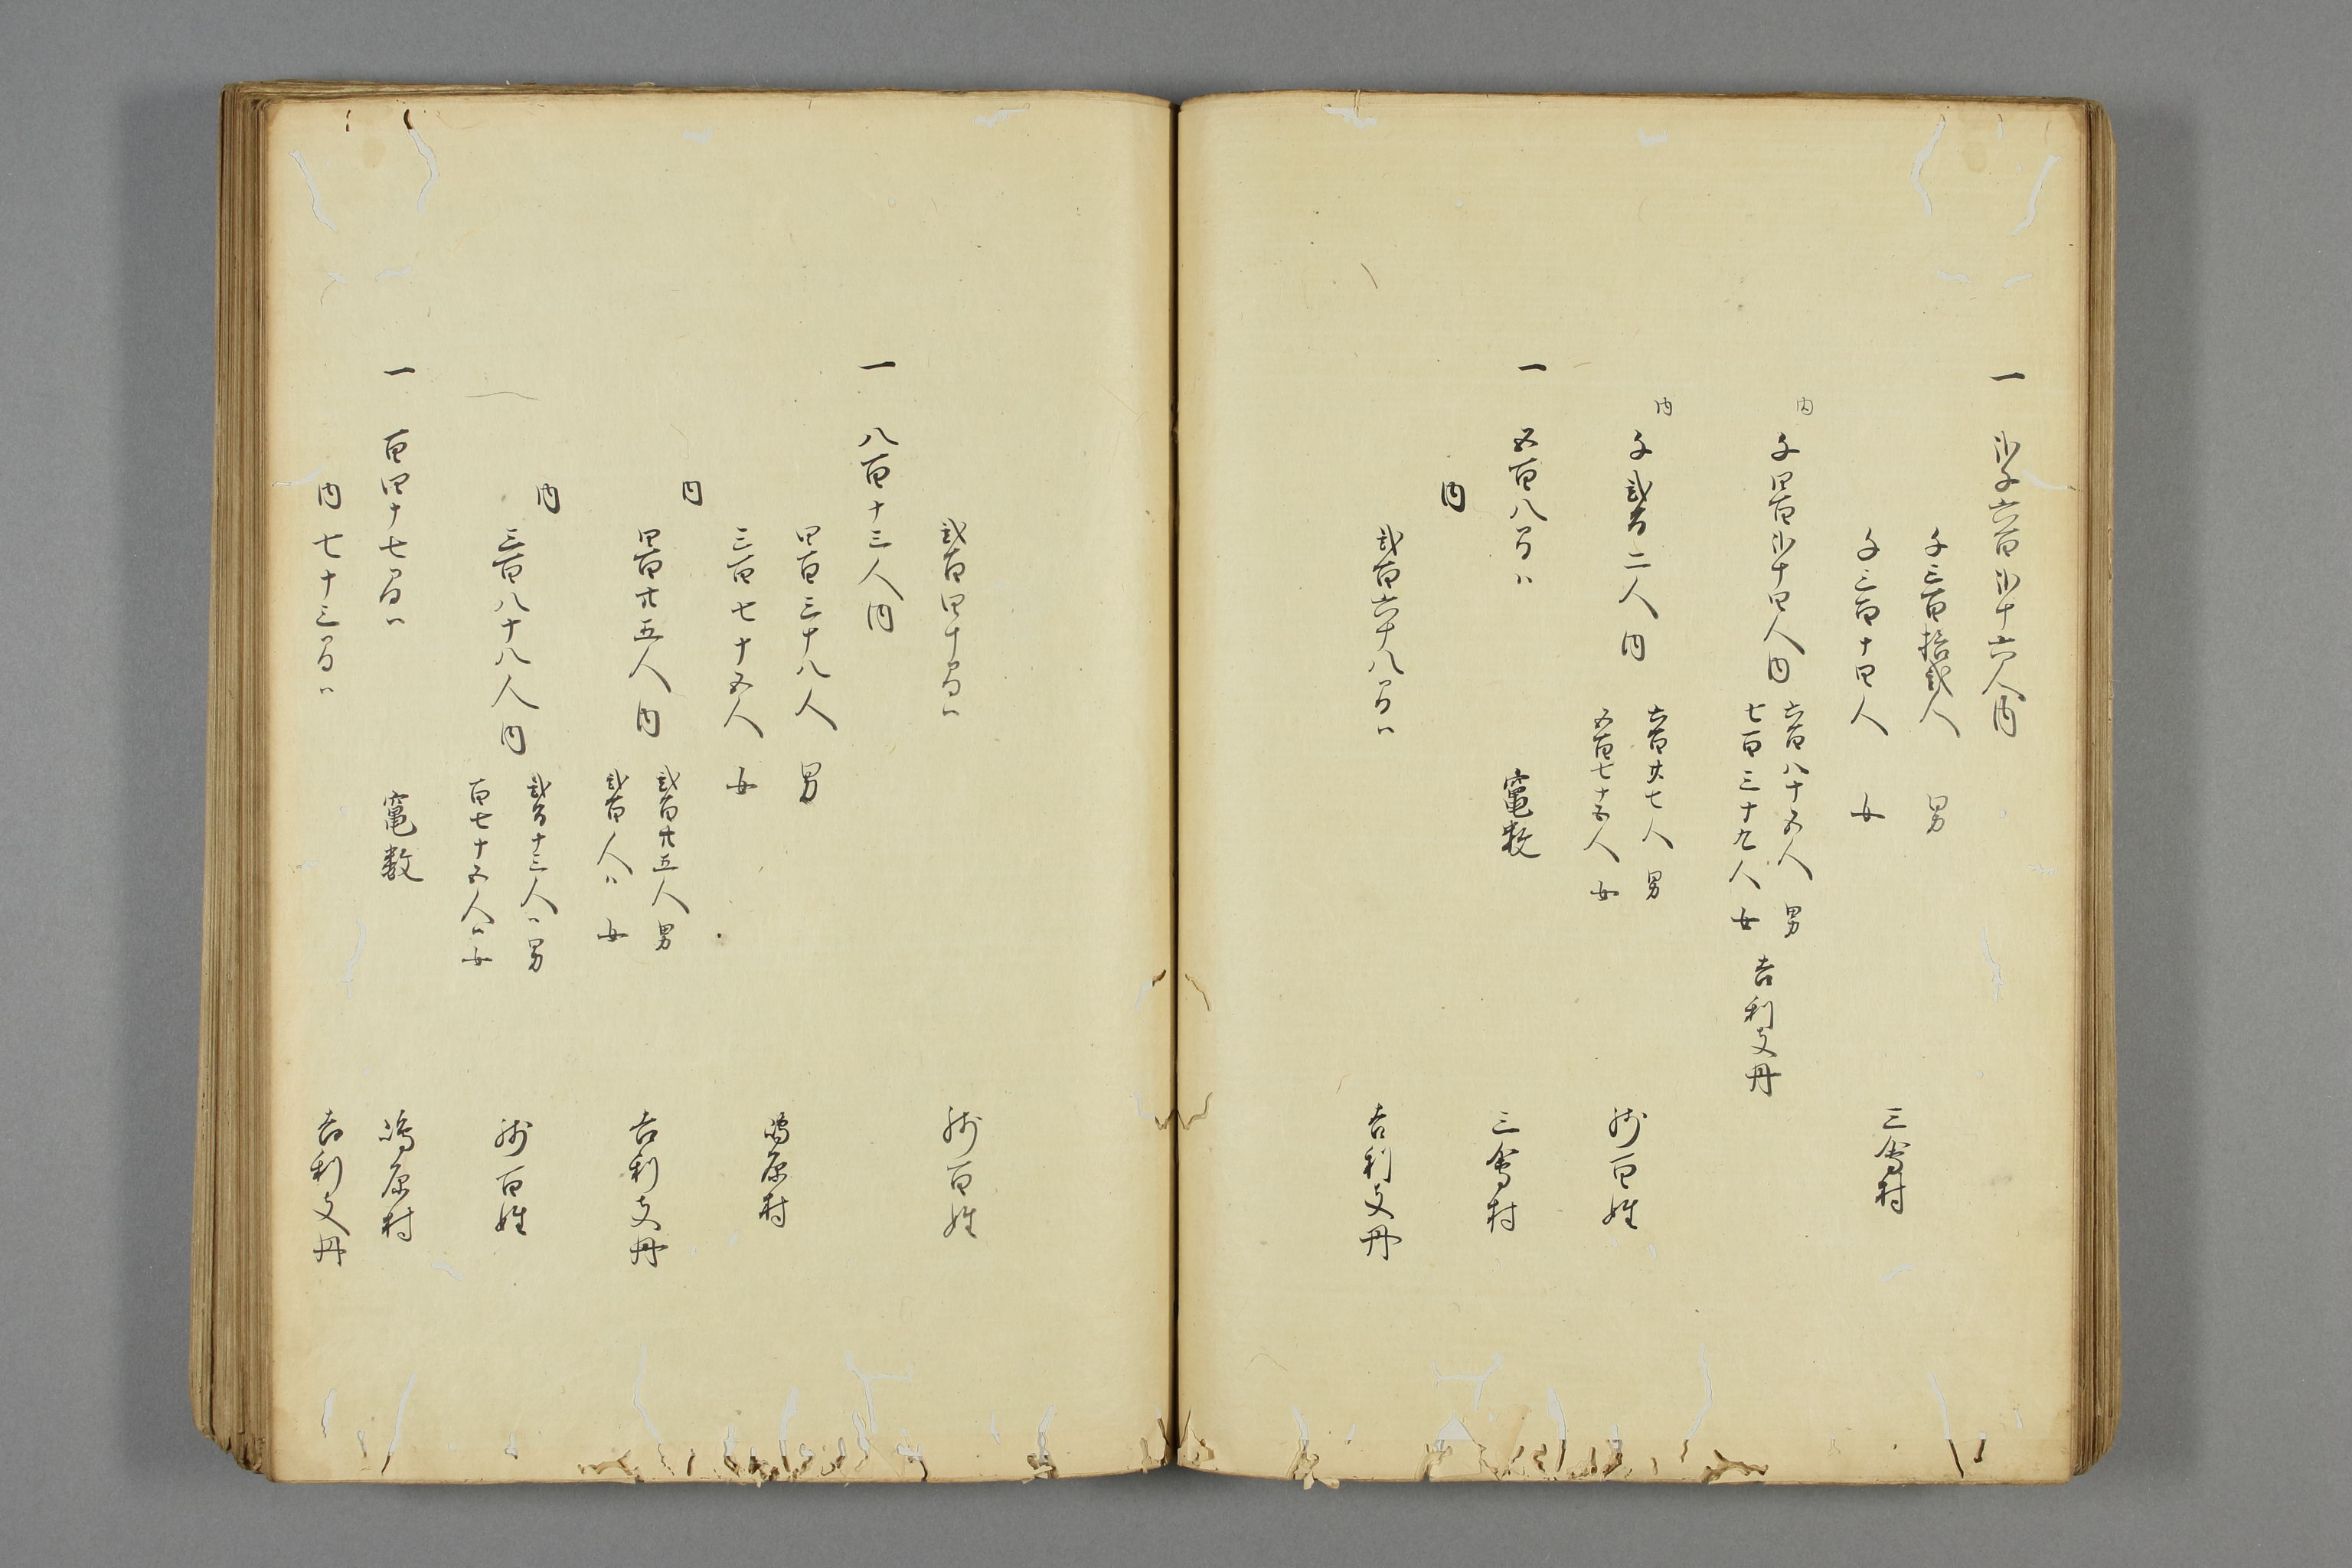 一 弐千六百弐十六人内
千三百拾弐人 男
三會村
千三百十四人 女
内 千四百弐十四人内
六百八十五人 男
七百三十九人 女
吉利支丹
内 千弐百二人内
六百廿七人 男
五百七十五人 女
残百姓
一 五百八間ハ 竈数 三會村
内
弐百六十八間ハ 吉利支丹
弐百四十間ハ 残百姓
一 八百十三人内
四百三十八人 男
嶋原村
三百七十五人 女
内
四百廿五人内
弐百廿五人 男
弐百人ハ 女
吉利支丹
内
三百八十八人内
弐百十三人ハ 男
百七十五人ハ 女
残百姓
一 百四十七間ハ 竈数 嶋原村
内 七十三間ハ 吉利支丹